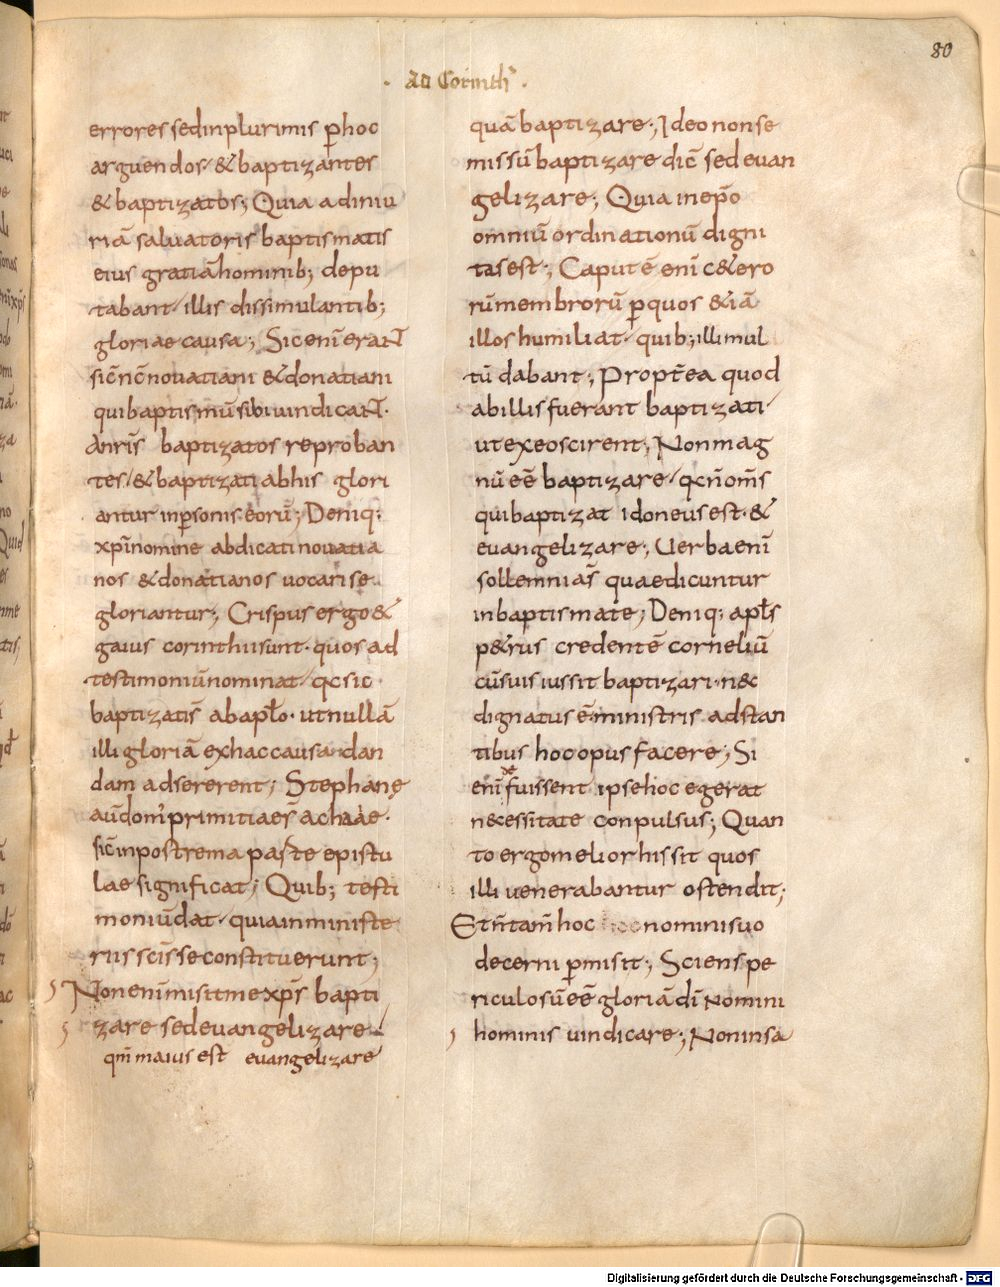 80
· Ad Corinth ·
errores sed in plurimis p̱ hoc
arguendos / & baptizantes
& baptizatos; Quia ad iniu
riā saluatoris baptismatis
eius gratiā hominib; depu
tabant / illis dissimulantib;
gloriae causa; Sic enī erant
sic̄ nc̄ nouatiani & donatiani
qui baptismū sibi uindicant.
A nr̄is baptizatos reproban
tes / & baptizati ab his glori
antur in ꝑsonis eorū; Deniq;
xpī nomine abdicati nouatia
nos & donatianos uocari se
gloriantur; Crispus ergo &
gaius corinthii sunt · quos ad
testimoniū nominat / qc sic
baptizatis̄ ab aplo · ut nullā
illi gloriā ex hac causa dan
dam adsererent; Stephanę
aūdom' primitiaes̄ achaiae ·
sic̄ in postrema parte epistu
lae significat; Quib; testi
moniū dat / quia in ministe
riis scīs se constituerunt;
Non enī misit me xps̄ bapti
zare sed euangelizare
qm̄ maius est euangelizare
quā baptizare; Ideo non se
missū baptizare dic̄ sed euan
gelizare; Quia in ep̄o
omniū ordinationū digni
tas est; Caput ē enī c&ero
rū membrorū ꝑ quos & iā
illos humiliat / quib; illi mul
tū dabant; Propt̄ea quod
ab illis fuerant baptizati /
ut ex eos cirent; Non mag
nū eē baptizare / qc n̄ om̄s
qui baptizat idoneus est · &
euangelizare; Uerba enī
sollemnia s̄ quae dicuntur
in baptismate; Deniq; apl̄s
p&rus credentē corneliū
cū suis iussit baptizari · nec
dignatus ē ministris adstan
tibus hoc opus facere; Si
enī fuissent ipse hoc egerat
necessitate conpulsus; Quan
to ergo melior his sit quos
illi uenerabantur ostendit;
Et n̄ tam̄ hoc nomini suo
decerni ꝑmisit; Sciens pe
riculosū eē gloriā dī nomini
hominis uindicare; Non in sa
Digitalisierung gefördert durch die Deutsche Forschungsgemeinschaft - DFG